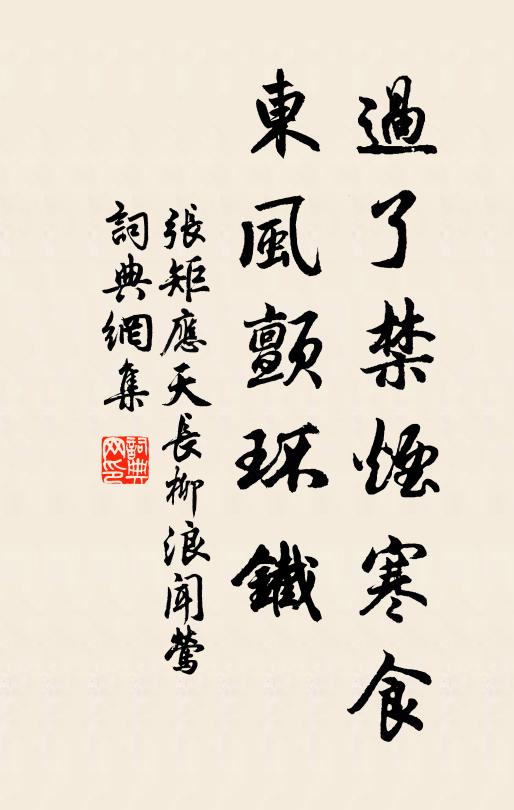 過了禁煙寒食
東風顫环鐵
張矩應天長柳浪聞鶯
詞典網集
詞典网印